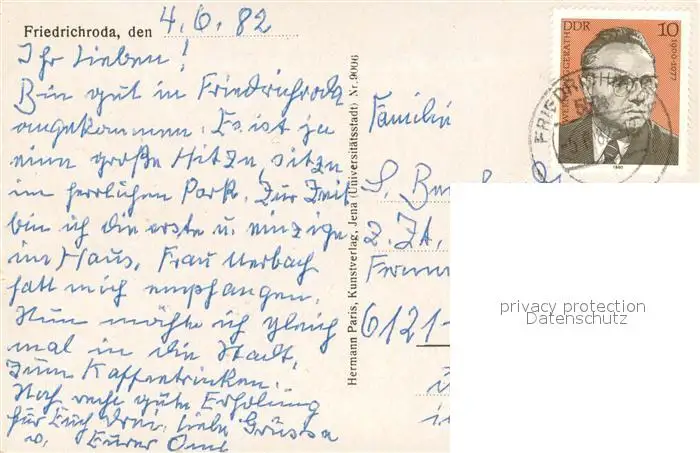 Friedrichroda, den 4.6.82
Ihr Lieben!
Bin gut in Friedrichroda
angekommen. Es ist ja
eine große Hitze, sitze
im herrlichen Park. Zur Zeit
bin ich die erste u. einzige
im Haus, Frau Uerbach
hatt mich empfangen.
Nun möchte ich gleich
mal in die Stadt,
zum Kaffeetrinken.
Noch recht gute Erholung
für Euch drei. liebe Grüsse
v. Eurer Omi
Hermann Paris, Kunstverlag, Jena (Universitätsstadt) Nr. 9006
Familie
S.
z. Zt.
6121
DDR
10
1900-1977
1980
FRIEDRICH
privacy protection
Datenschutz